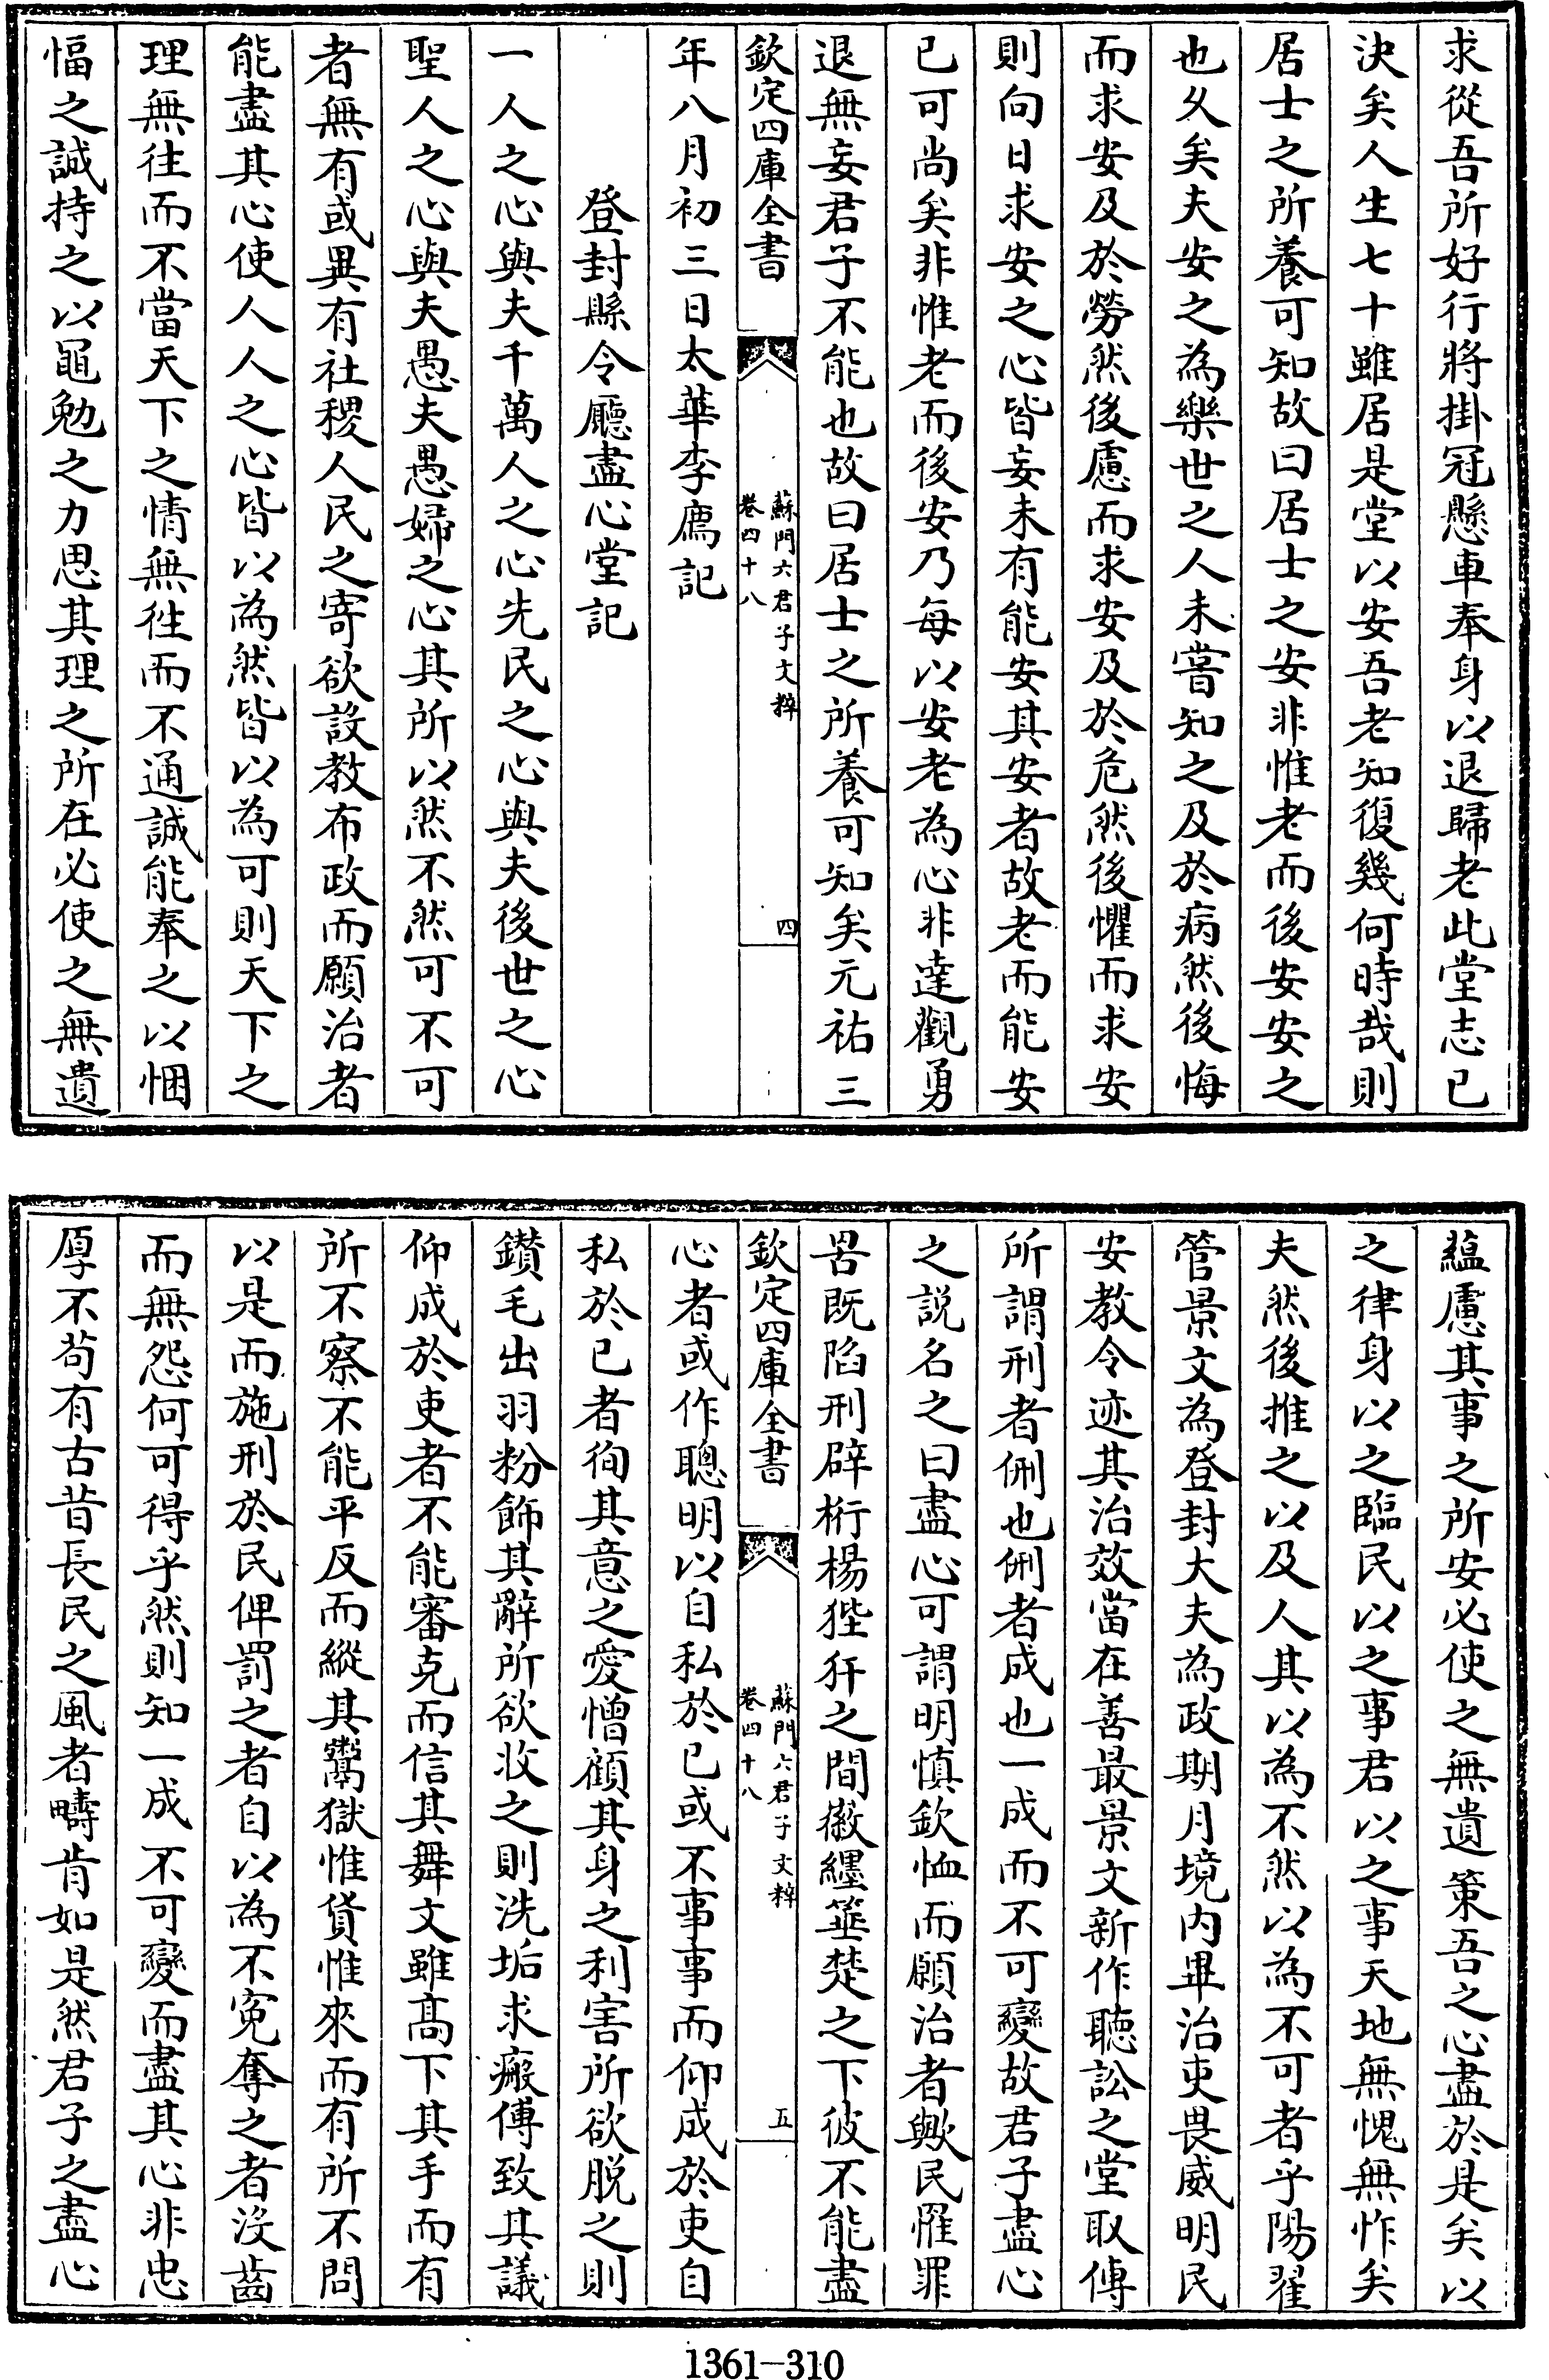 求從吾所好行將掛冠懸車奉身以退歸老此堂志已
決矣人生七十雖居是堂以安吾老知復幾何時哉則
居士之所養可知故曰居士之安非惟老而後安安之
也乆矣夫安之為樂世之人未嘗知之及於病然後悔
而求安及於勞然後慮而求安及於危然後懼而求安
則向日求安之心皆妄未有能安其安者故老而能安
已可尚矣非惟老而後安乃每以安老為心非達觀勇
退無妄君子不能也故曰居士之所養可知矣元祐三
欽定四庫全書
蘇門六君子文粹
卷四十八
四
年八月初三日太華李廌記
登封縣令廳盡心堂記
一人之心與夫千萬人之心先民之心與夫後世之心
聖人之心與夫愚夫愚婦之心其所以然不然可不可
者無有或異有社稷人民之寄欲設教布政而願治者
能盡其心使人人之心皆以為然皆以為可則天下之
理無往而不當天下之情無徃而不通誠能奉之以悃
愊之誠持之以黽勉之力思其理之所在必使之無遺
蘊慮其事之所安必使之無遺策吾之心盡於是矣以
之律身以之臨民以之事君以之事天地無愧無怍矣
夫然後推之以及人其以為不然以為不可者乎陽翟
管景文為登封大夫為政期月境内畢治吏畏威明民
安教令迹其治效當在善最景文新作聽訟之堂取傳
所謂刑者侀也侀者成也一成而不可變故君子盡心
之説名之曰盡心可謂明慎欽恤而願治者歟民罹罪
罟既陷刑辟桁楊狴犴之間徽纆箠楚之下彼不能盡
欽定四庫全書
蘇門六君子文粹
卷四十八
五
心者或作聰明以自私於已或不事事而仰成於吏自
私於已者徇其意之愛憎顧其身之利害所欲脱之則
鑚毛出羽粉飾其辭所欲收之則洗垢求瘢傅致其議
仰成於吏者不能審克而信其舞文雖髙下其手而有
所不察不能平反而縱其鬻獄惟貨惟來而有所不問
以是而施刑於民俾罰之者自以為不寃奪之者沒齒
而無怨何可得乎然則知一成不可變而盡其心非忠
厚不苟有古昔長民之風者疇肯如是然君子之盡心
1361-310